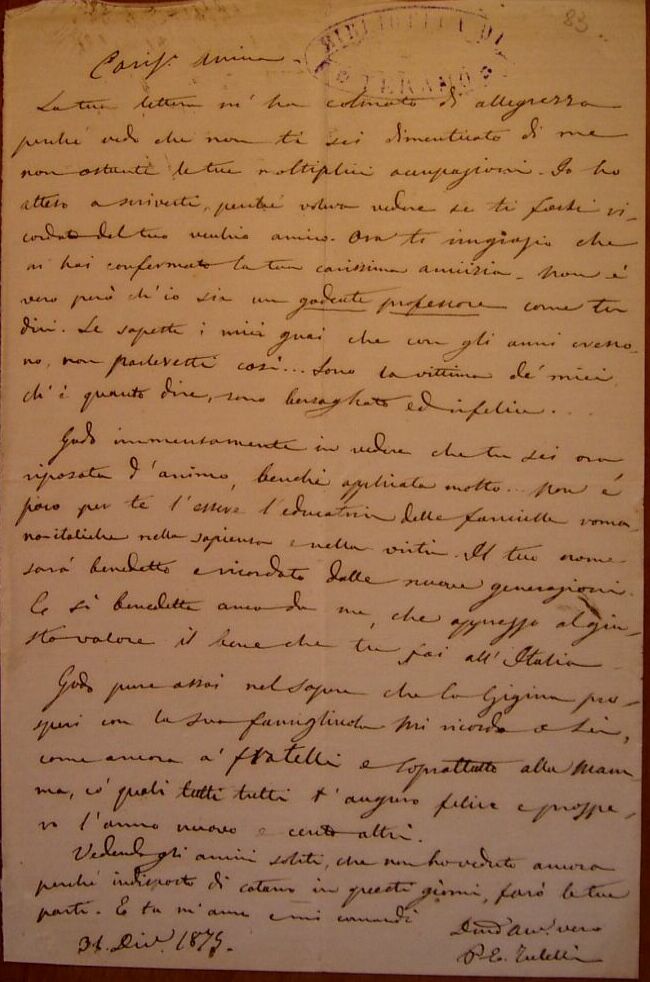 83
BIBLIOTECA DI
TERAMO
Cariss. amica
La tua lettera m'ha colmato di allegrezza
perché vedo che non ti sei dimenticato di me
non ostante le tue moltiplici occupazioni. Io ho
atteso a scriverti, perché voleva vedere se ti fossi ri-
cordato del tuo vecchio amico. Ora ti ringrazio che
mi hai confermato la tua carissima amicizia. Non è
vero però ch'io sia un gaudente professore come tu
dici. Se sapeste i miei guai che con gli anni cresco-
no, non parlereste così... Sono la vittima de' miei
ch'è quanto dire, sono bersagliato ed infelice...
Godo immensamente in vedere che tu sei ora
riposata d'animo, benché applicata molto... Non è
poco per te l'essere l'educatrice delle fanciulle roma-
no-italiche nella sapienza e nella virtù. Il tuo nome
sarà benedetto e ricordato dalle nuove generazioni.
E sì benedetta anco da me, che apprezzo al giu-
sto valore il bene che tu fai all'Italia
Godo pure assai nel sapere che la Gigina pro-
speri con la sua famigliuola. Mi ricorda a Lei,
come ancora a' fratelli e soprattutto alla Mam-
ma, co' quali tutti tutti t'auguro felice e prospe-
ro l'anno nuovo e cento altri.
Vedendo gli amici soliti, che non ho veduto ancora
perché indisposto di cataro in questi giorni, farò le tue
parti. E tu m'ama e mi comandi
31. Dic. 1875.
vero
P. E.